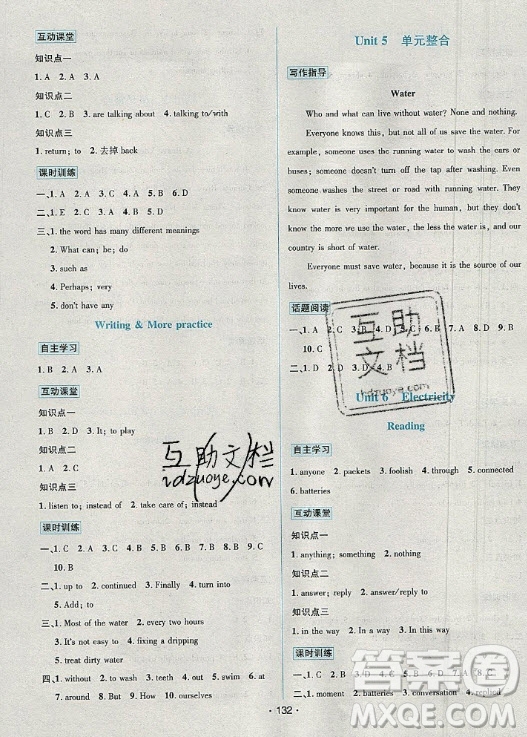 互动课堂
知识点一
1. A  2. A  3. A
知识点二
1. C  2. B  3. are talking about  4. talking to/with
知识点三
1. return; to  2. 去掉 back
课时训练
一、1. A  2. D  3. A  4. A  5. B  6. D
二、1. E  2. C  3. D  4. B  5. A
三、1. the word has many different meanings
2. What can; be; do
3. such as
4. Perhaps; very
5. don't have any
Writing & More practice
自主学习
1. B  2. A  3. B
互动课堂
知识点一
1. B  2. A  3. It; to play
知识点二
1. C  2. B
知识点三
1. listen to; instead of  2. take care of; instead
课时训练
一、1. C  2. A  3. B  4. C  5. B  6. A  7. B  8. B  9. C
10. B
二、1. up to  2. continued  3. Finally  4. turn into
5. Add; to
三、1. Most of the water  2. every two hours
3. without drinking  4. fixing a dripping
5. treat dirty water
四、1. without  2. to wash  3. teeth  4. out  5. at  6. swim
7. around  8.  9. How  10. ourselves
Unit 5 单元整合
写作指导
Water
Who and what can live without water? None and nothing.
Everyone knows this, but not all of us save the water. For
example, someone uses the running water to wash the cars or
buses; someone doesn't turn off the tap after washing. Even
someone washes the street or road with running water. We
know water is very important for the human, but they don't
know the more we use the water, the less the water is, and our
country is short of water.
Everyone must save water, because it is the source of our
lives.
话题阅读
一、1. C  2. B  3. B
10. C
二、
Unit 6 Electricity
Reading
自主学习
1. anyone  2. packets  3. foolish  4. through  5. connected
6. batteries
互动课堂
知识点一
1. anything; something  2. nothing
知识点二
1. answer; reply  2. answer to
知识点三
1. in the way  2. In a way  3. in this way
课时训练
一、1. D
二、1. moment  2. batteries  3. conversation  4. replied
· 132 ·
互助
文档
hdzuoye.com
互助文档
hdzuoye.com
答案圈
MXQE.COM